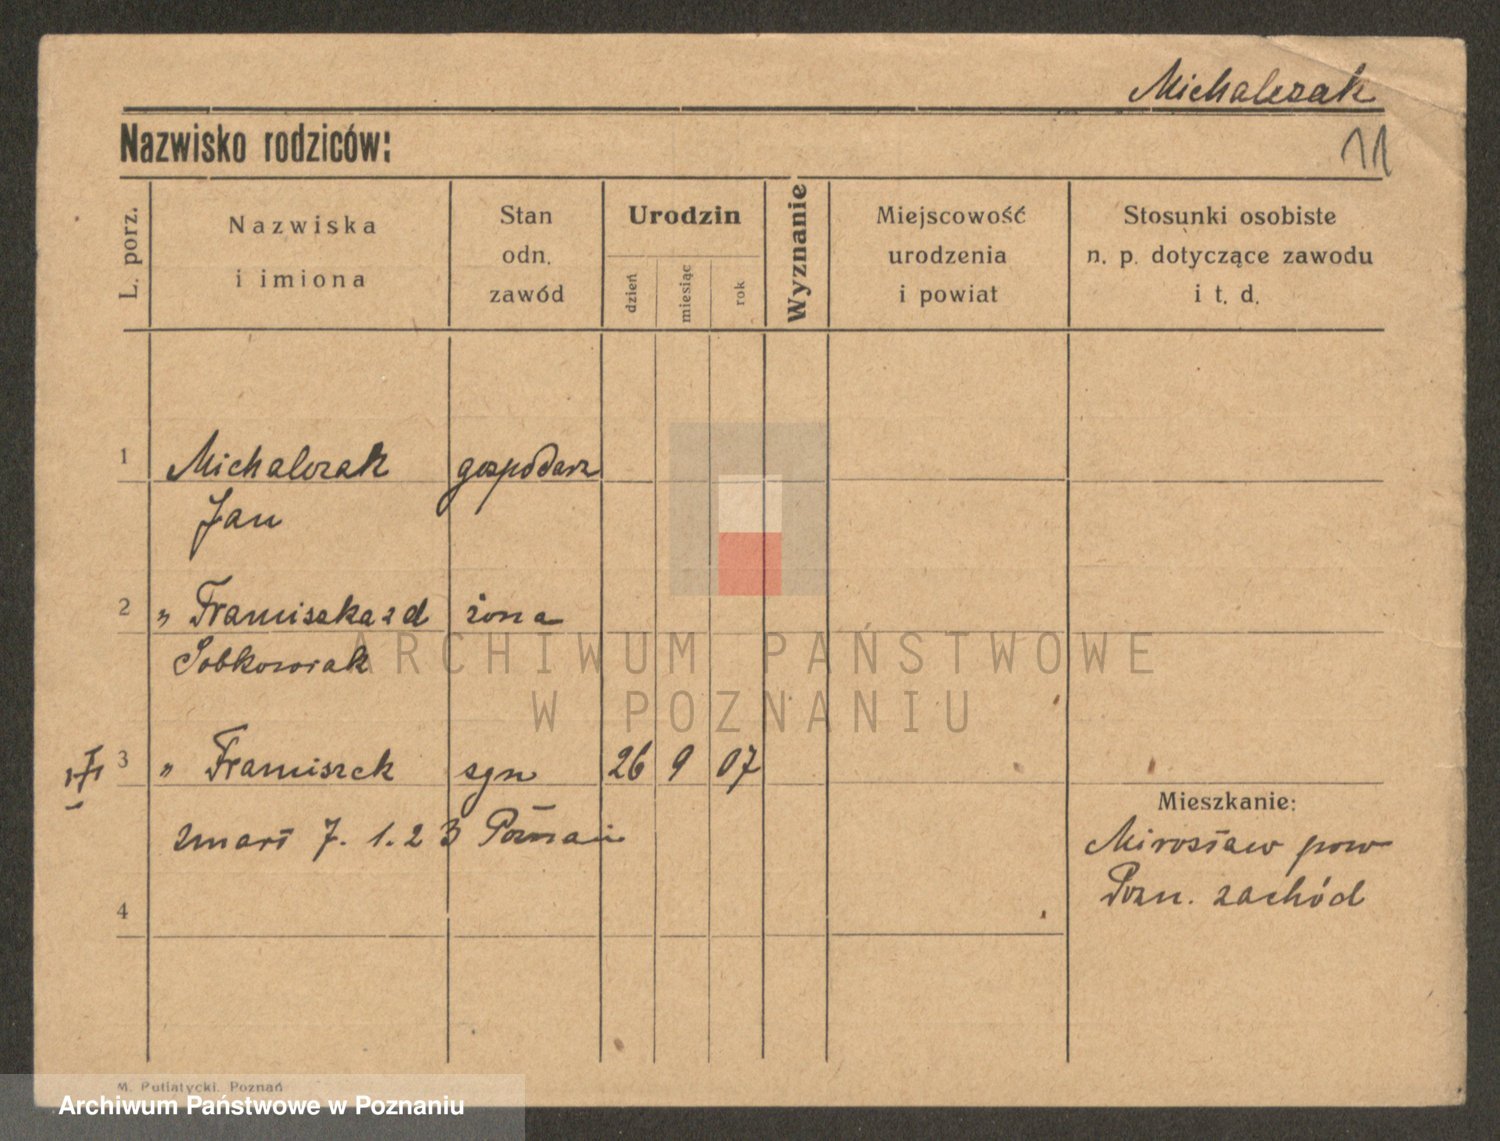 Michalczak
Nazwisko rodziców:
11
L. porz.
Nazwiska
i imiona
Stan
odn.
zawód
Urodzin
dzień
miesiąc
rok
Wyznanie
Miejscowość
urodzenia
i powiat
Stosunki osobiste
n. p. dotyczące zawodu
i t. d.
1 Michalczak gospodarz
Jan
2 „ Franciszka zd żona
Sobkowiak
3 „ Franciszek syn 26 9 07
zmarł 7. 1. 23 Poznań
4
Mieszkanie:
Mirosław pow
Pozn. zachód
ARCHIWUM PAŃSTWOWE
W POZNANIU
M. Putiatycki, Poznań
Archiwum Państwowe w Poznaniu